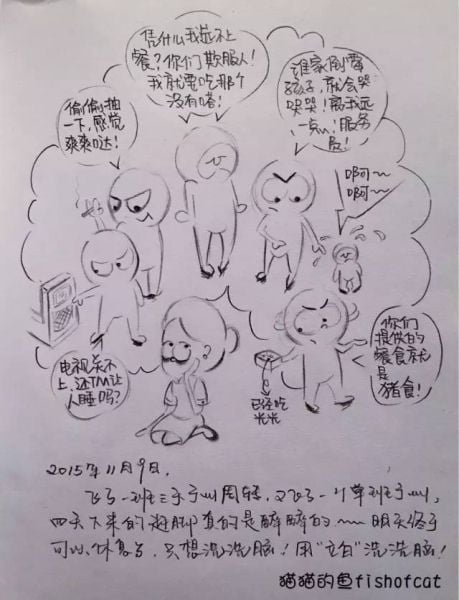 凭什么我选不上
餐？你们欺服人！
我就要吃那个
没有啥！
谁家倒霉
孩子，就会哭
哭哭！离我远
一点！服务
员！
偷偷抽
一下，感觉
爽爽哒！
啊~
啊~
电视关不
上，还TM让
人睡吗？
已经吃
光光
你们
提供的
餐食就
是
猪食！
2015年11月9日，
飞了一班三天广州周转，又飞了一个单班广州，
四天下来的
真的是醉醉的~~明天终于
可以休息了，只想洗洗脑！用"立白"洗洗脑！
猫猫的鱼fishofcat